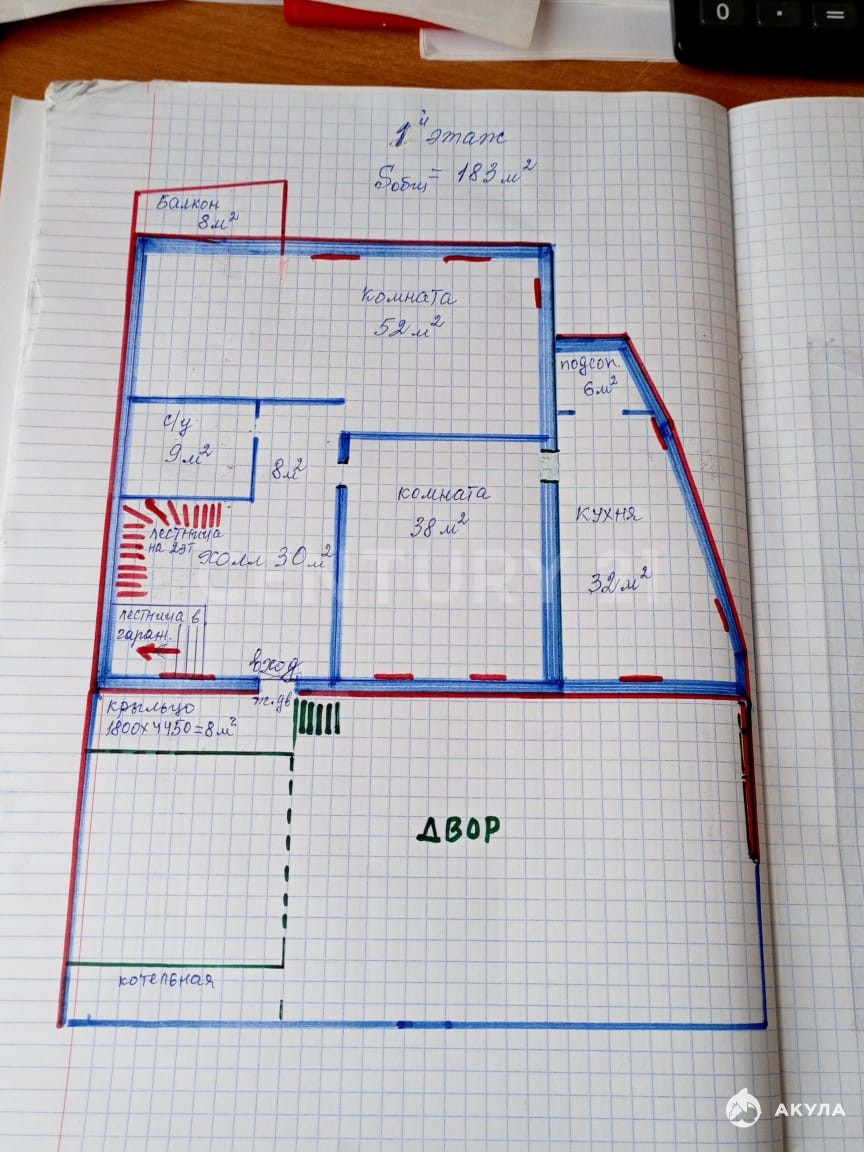 1й этаж
Sобщ = 183 м²
Балкон
8 м²
комната
52 м²
подсоп.
6 м²
с/у
9 м²
8 м²
комната
38 м²
кухня
32 м²
лестница
на 2эт
холл 30 м²
CENTURY 21
лестница в
гараж.
вход
ж.дв
крыльцо
1800х4450=8м²
ДВОР
котельная
АКУЛА
0 . =